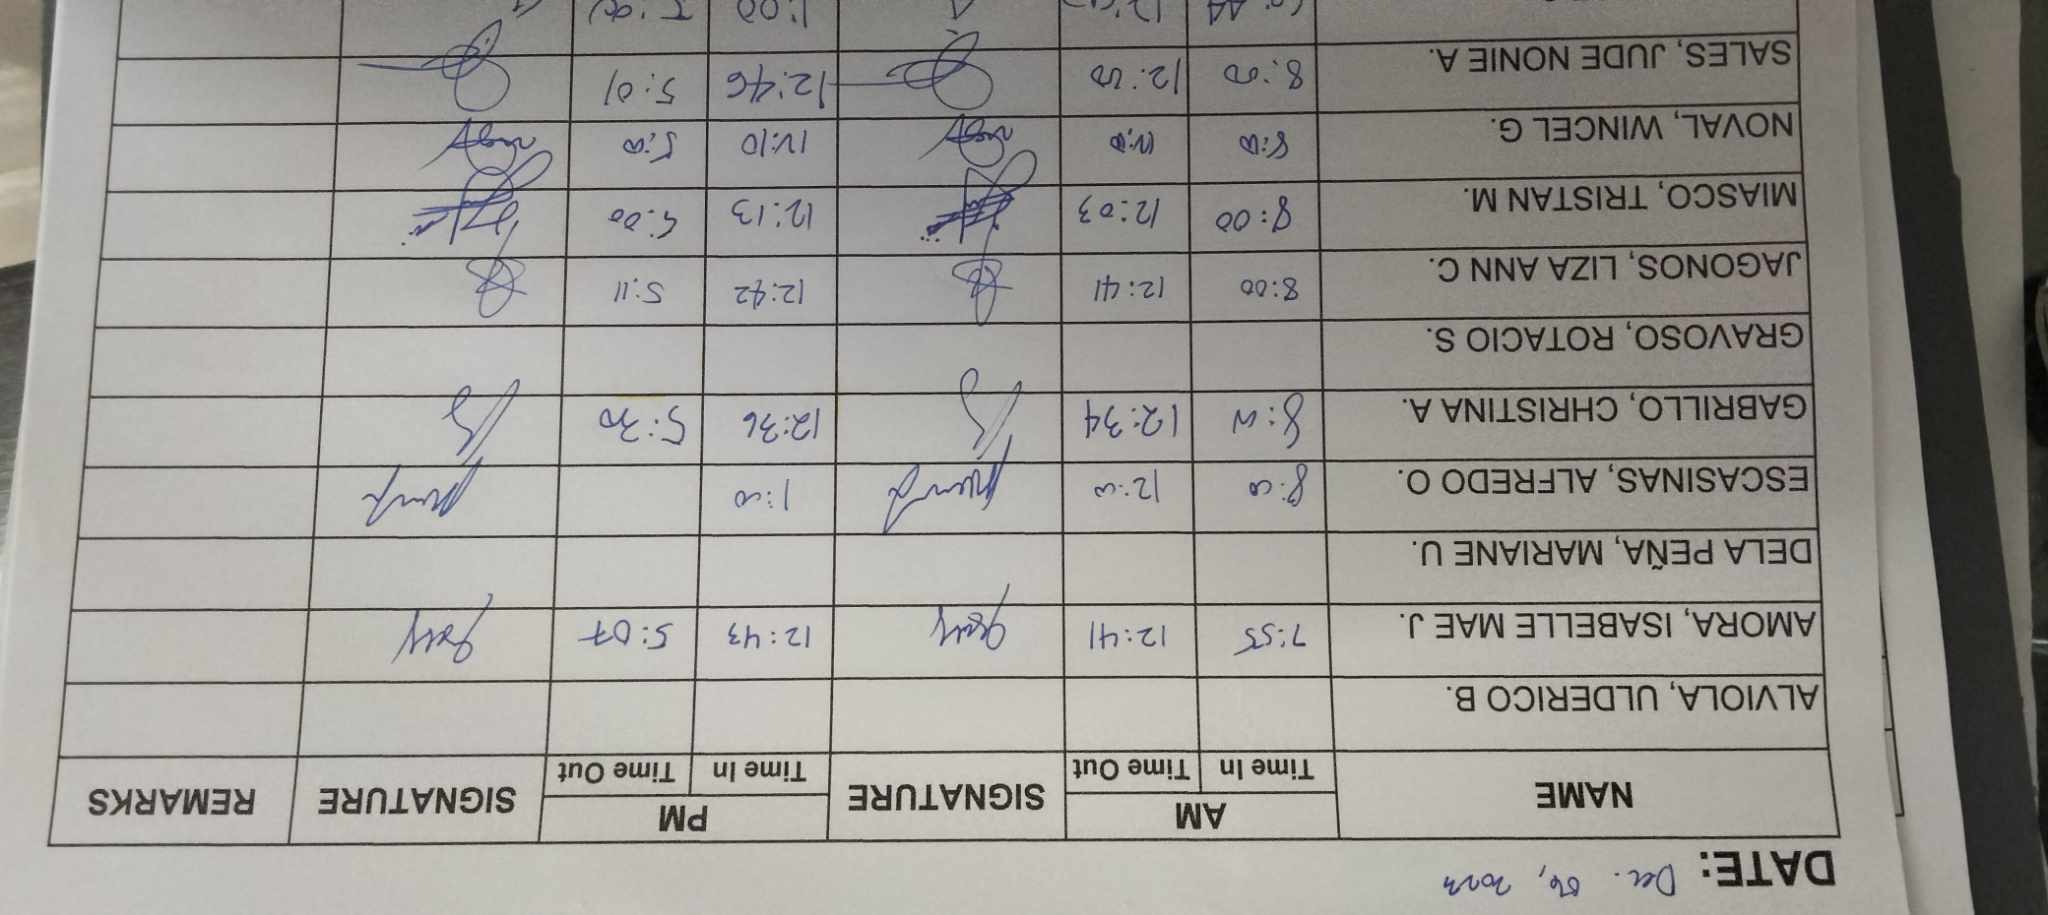 DATE: Dec. 06, 2023
NAME AM SIGNATURE PM SIGNATURE REMARKS
Time In Time Out Time In Time Out
ALVIOLA, ULDERICO B.
AMORA, ISABELLE MAE J. 7:55 12:41 12:43 5:07
DELA PEÑA, MARIANE U.
ESCASINAS, ALFREDO O. 8:00 12:00 1:00
GABRILLO, CHRISTINA A. 8:00 12:34 12:36 5:30
GRAVOSO, ROTACIO S.
JAGONOS, LIZA ANN C. 8:00 12:41 12:42 5:11
MIASCO, TRISTAN M. 8:00 12:03 12:13 5:00
NOVAL, WINCEL G. 8:00 12:00 12:10 5:00
SALES, JUDE NONIE A. 8:00 12:00 12:46 5:01
1:00